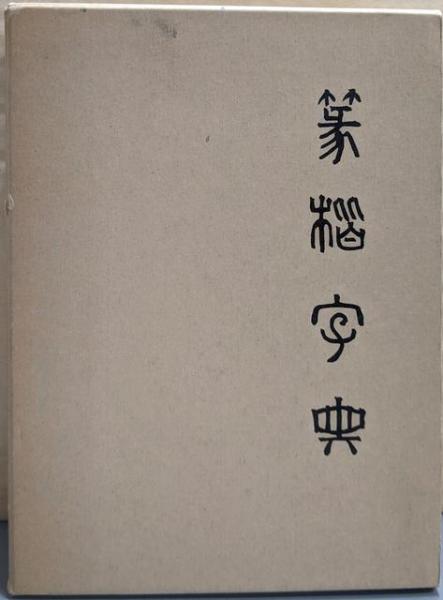 篆楷字典